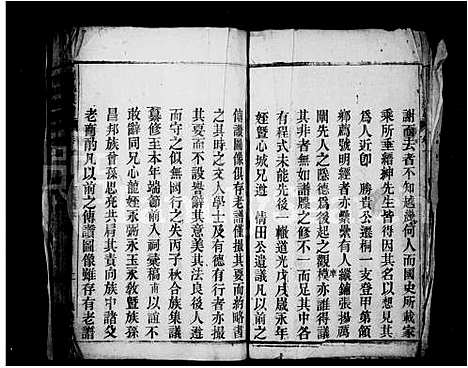 謝而去者不知越幾何人而國史所載家
乘所垂縉紳先生皆得因其名以想見其
爲人近卽勝貴公遷桐一支登甲第領
鄉薦號明經者亦纍纍有人縱鋪張揚厲
闡先人之隱德爲後起之觀摩亦誰得議
其非者無如譜牒之修不一而足其中各
有程式未能先後一轍道光戊戌歲永年
姪曁心城兄遵 情田公遺議凡以前之
傳讚圖像俱存老譜僅撮其要而約略書
之其時之文人學士及有德有行者亦撮
其要而不設譽辭其意美其法良後人遵
而守之似無罔行之失丙子秋合族集議
纂修至本年端節前入祠彙稿
敢辭同兄
昌邦族曾孫思亮共肩其責向族中諸父
老商酌凡以前之傳讚圖像雖存有老譜